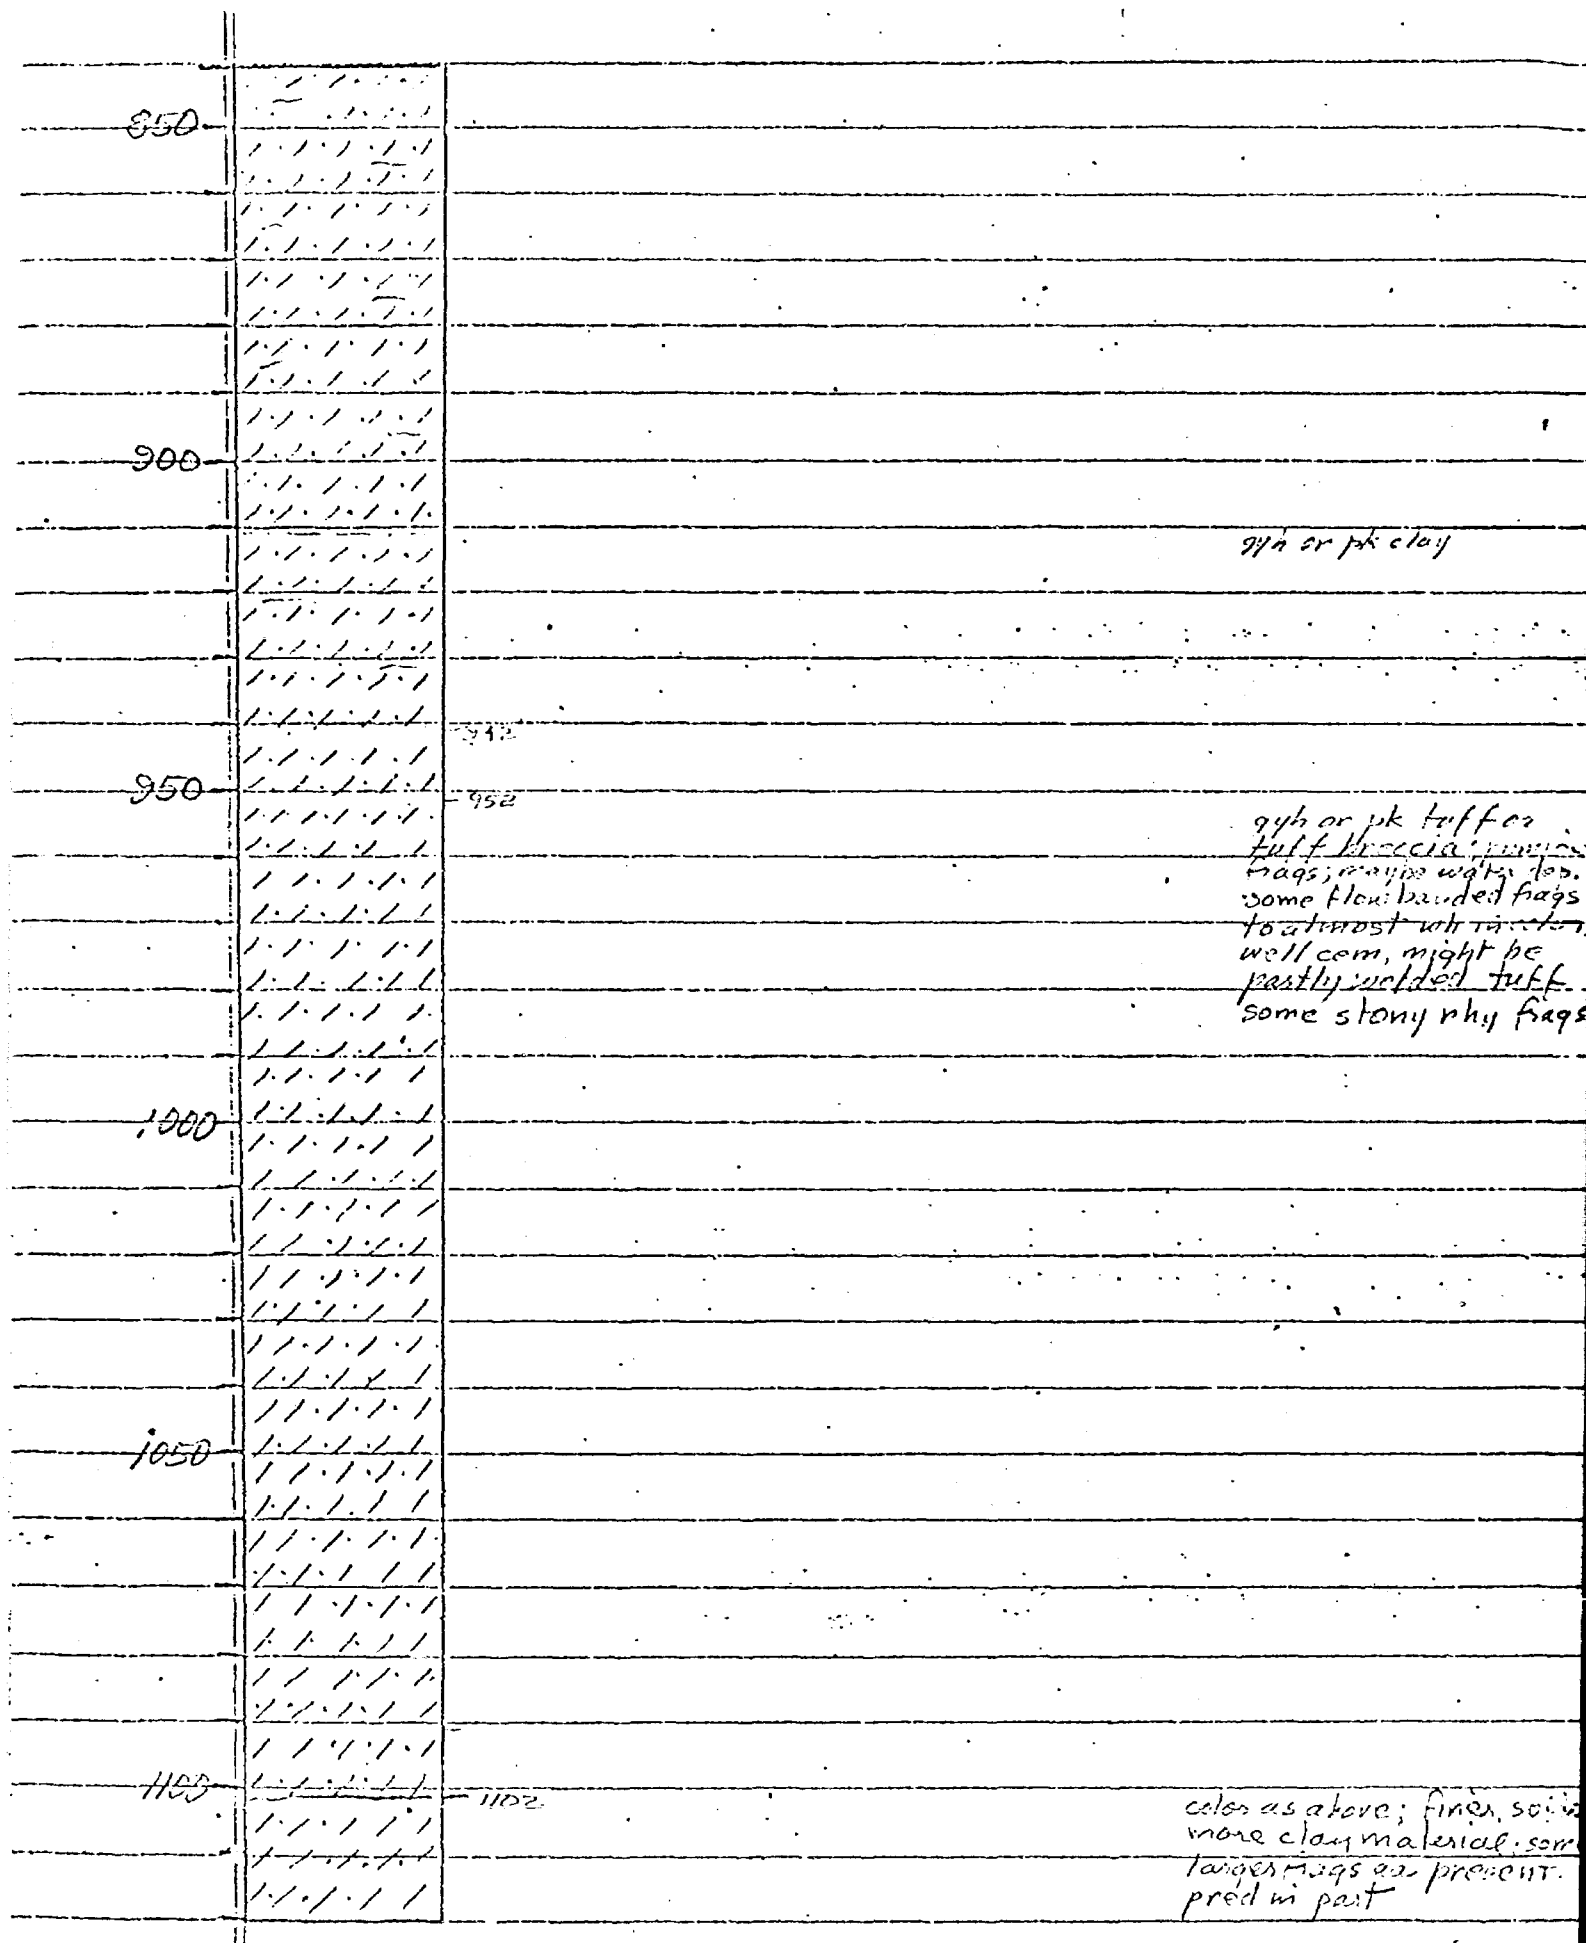 850
900
gyh or pk clay
942
950
952
gyh or pk tuff or
tuff breccia; pumice
frags; maybe water dep.
some flow banded frags
to almost wh in color
well cem, might be
partly welded tuff
some stony rhy frags
1000
1050
1100
1102
color as above; finer,
more clay material; some
larger frags present.
pred in part